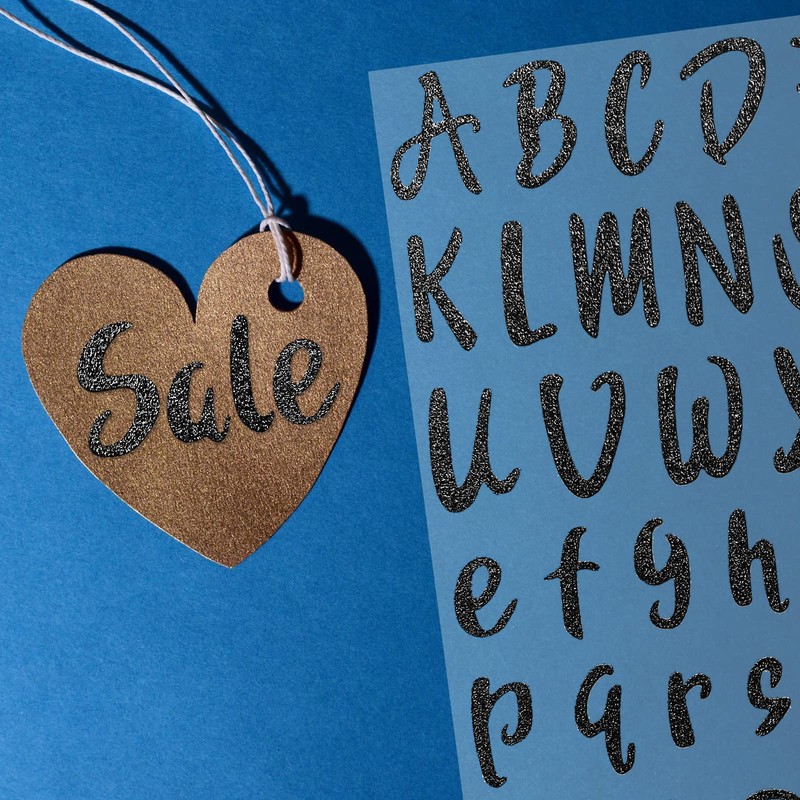 Sale
A B C D
K L M N
U V W
e f g h
p q r s